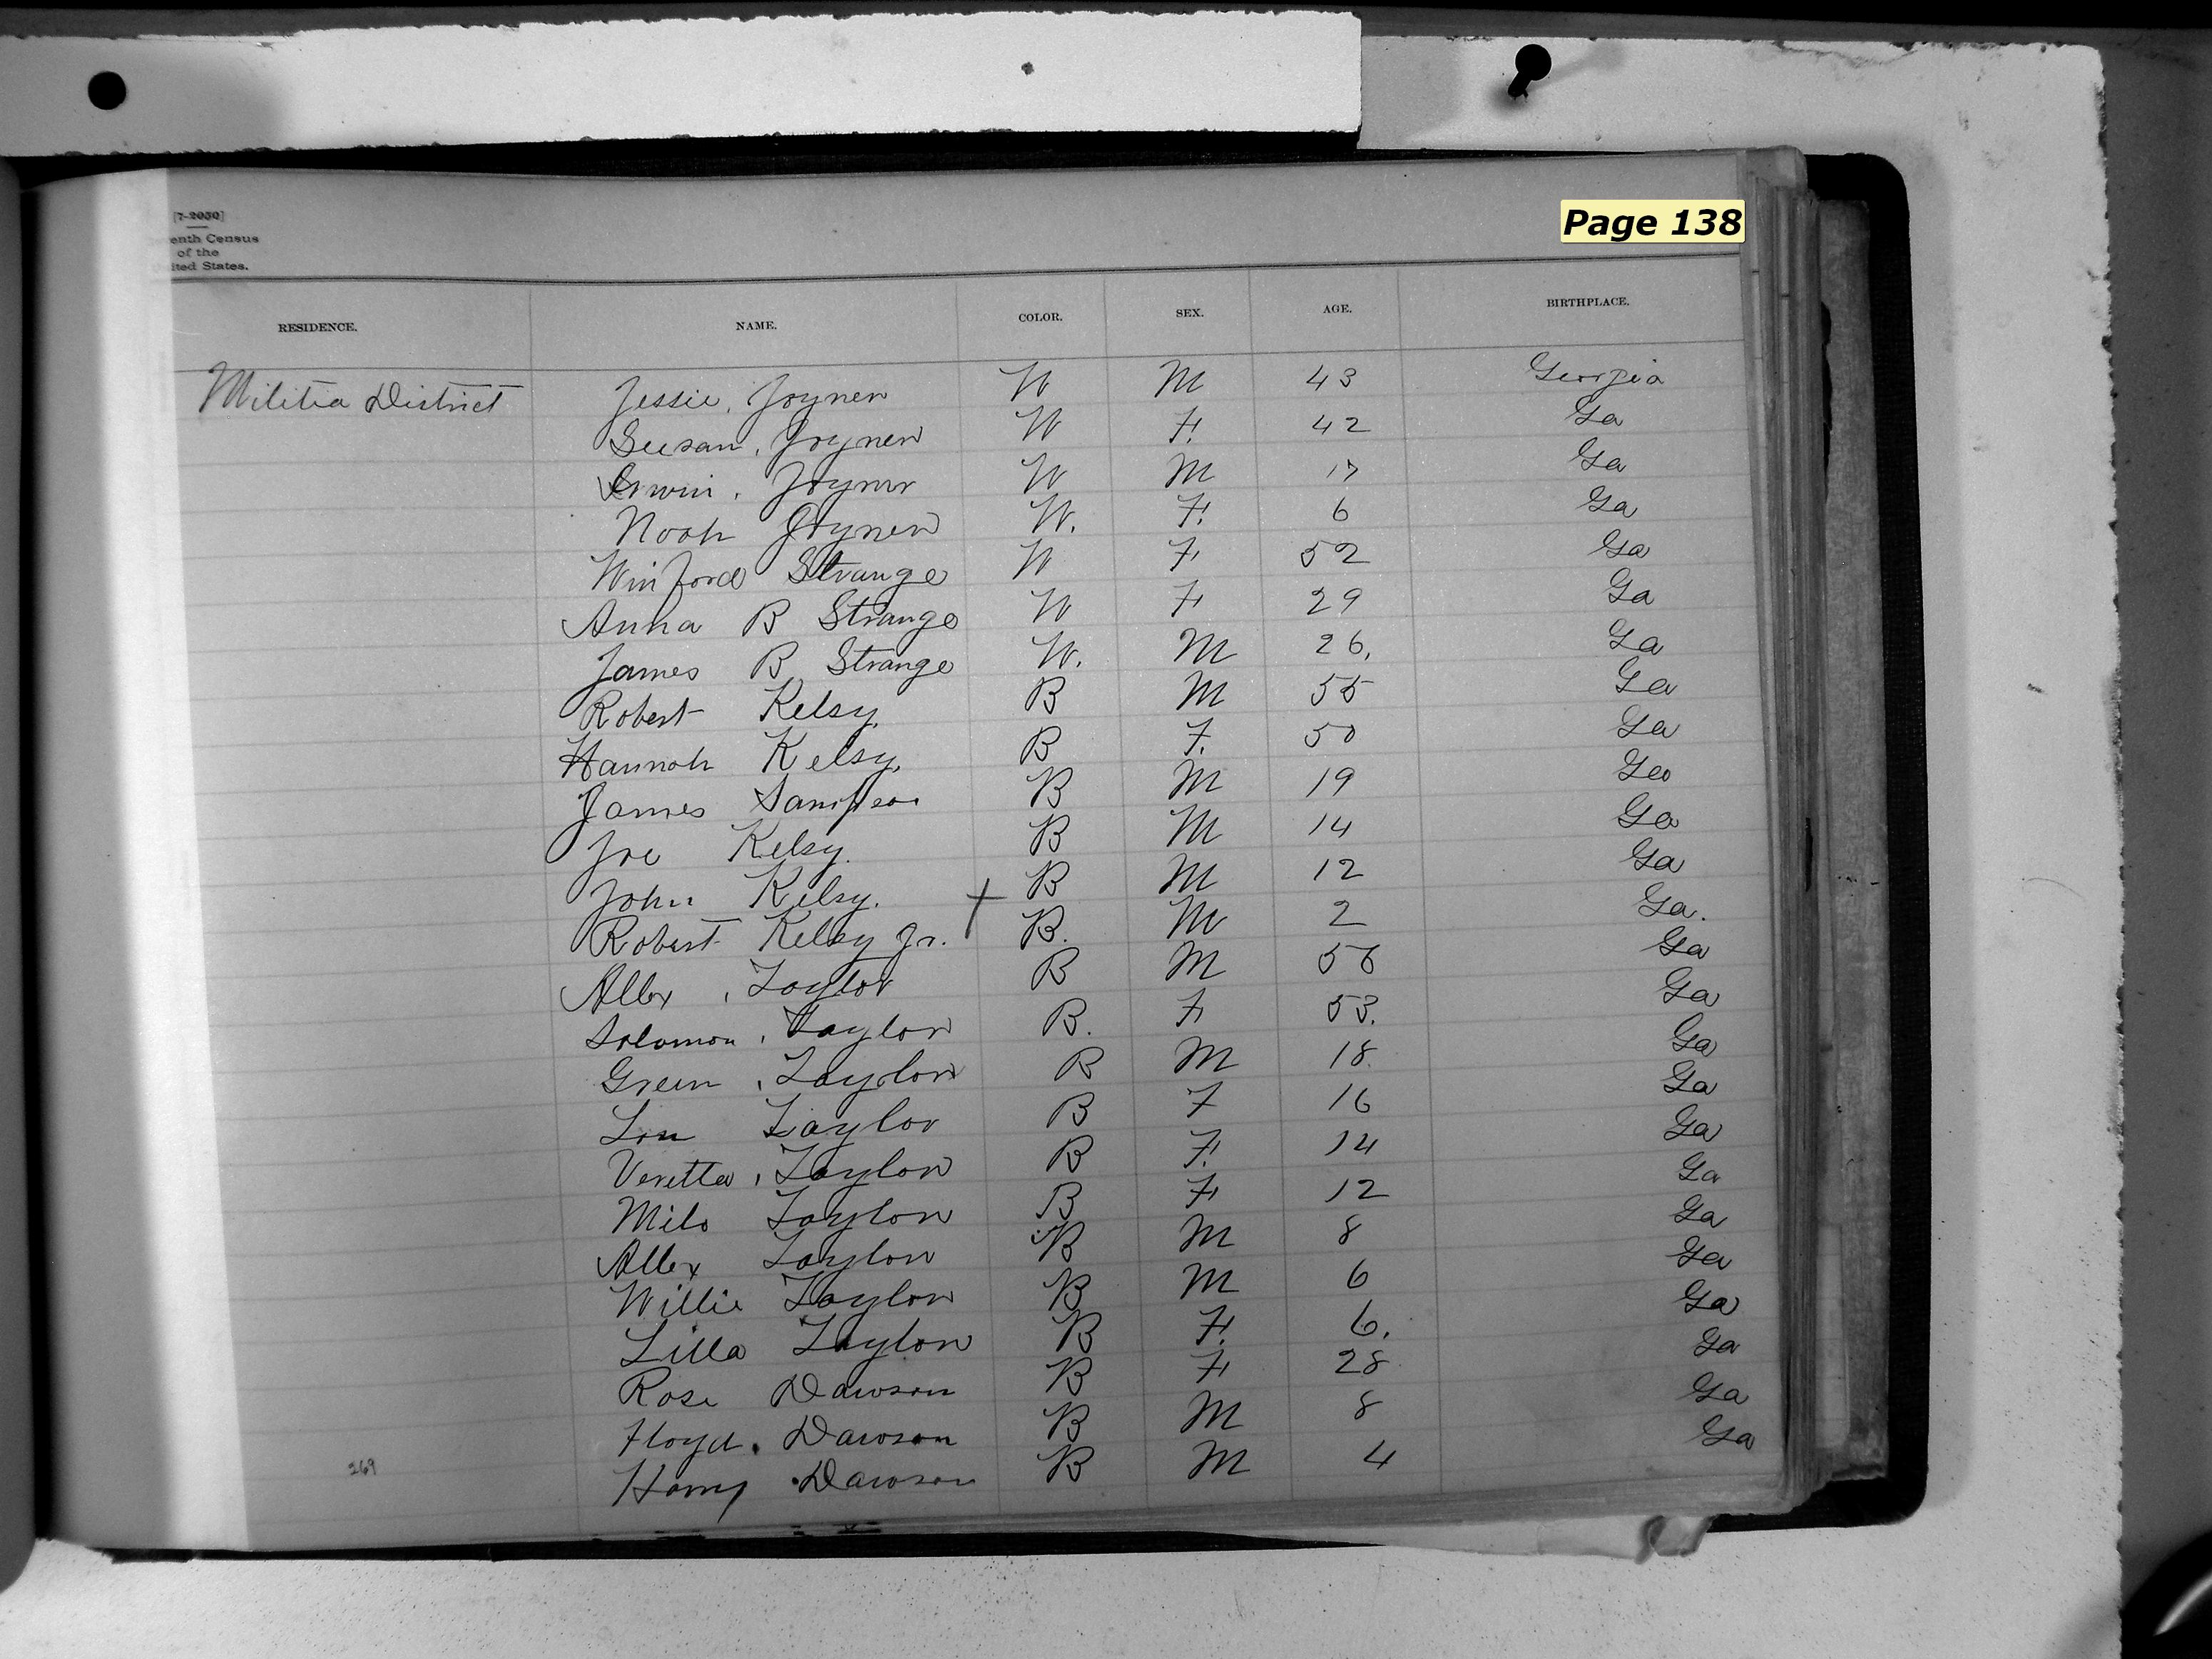 [7-2050]
enth Census
of the
ited States.
Page 138
RESIDENCE. NAME. COLOR. SEX. AGE. BIRTHPLACE.
Militia District Jessie, Joyner W M 43 Georgia
Susan, Joyner W F. 42 Ga
Joyner W M 17 Ga
Noah Joyner W. F. 6 Ga
Winford Strange W F 52 Ga
Anna B Strange W F 29 Ga
James B Strange W. M 26, Ga
Robert Kelsy. B M 55 Ga
Hannah Kelsy, B F. 50 Ga
James Sampson B M 19 Geo
Joe Kelsy. B M 14 Ga
John Kelsy. B M 12 Ga
Robert Kelsy Jr. + B. M 2 Ga.
Allex, Taylor B M 56 Ga
Solomon, Taylor B. F 53. Ga
Green, Taylor B M 18 Ga
Lou Taylor B F 16 Ga
Veretta, Taylor B F. 14 Ga
Milo Taylor B F 12 Ga
Allex Taylor B M 8 Ga
Willie Taylor B M 6 Ga
Lilla Taylor B F. 6. Ga
Rose Dawson B F 28 Ga
Floyd. Dawson B M 8 Ga
269 Dawson B M 4 Ga